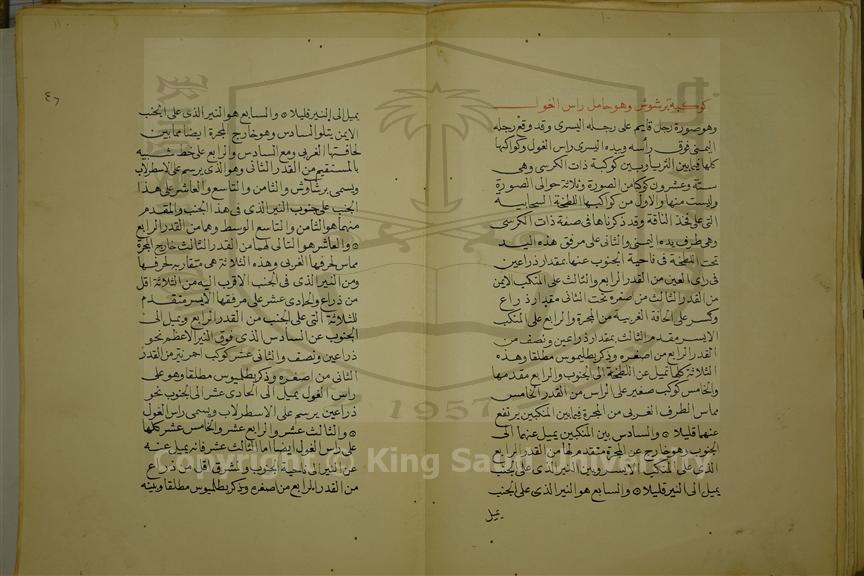 كوكبة برشوش وهو حامل راس الغول
وهو صورة رجل قايم على رجله اليسرى وقد رفع رجله
اليمنى فوق رأسه وبيده اليسرى راس الغول وكواكبها
كلها فيما بين الثريا وبين كوكبة ذات الكرسى وهى
ستة وعشرون كوكبا من الصورة وثلاثة حوالى الصورة
وليست منها والاول من كواكبها اللطخة السحابية
التى على فخذ الناقة وقد ذكرناها فى صفة ذات الكرسى
وهى طرف يده اليمنى والثانى على مرفق هذه اليد
تحت اللطخة فى ناحية الجنوب عنها بمقدار ذراعين
فى راى العين من القدر الرابع والثالث على المنكب الايمن
من القدر الثالث من صغره تحت الثانى مقدار ذراع
وكسر على الحافة الغربية من المجرة والرابع على المنكب
الايسر متقدم الثالث بمقدار ذراعين ونصف من
القدر الرابع من اصغره وذكر بطليموس مطلقا وهذه
الثلاثة كلها تميل عن اللطخة الى الجنوب والرابع مقدمها
والخامس كوكب صغير على الراس من القدر الخامس
مماس الطرف الغربى من المجرة فيما بين المنكبين يرتفع
عنهما قليلا ۞ والسادس بين المنكبين يميل عنهما الى
الجنوب وهو خارج عن المجرة متقدم لها من القدر الرابع
الذى على المنكب الايسر وبين النير الذى على الجنب
يميل الى النير قليلا ۞ والسابع هو النير الذى على الجنب
يميل
٤٦
يميل الى النير قليلا ۞ والسابع هو النير الذى على الجنب
الايمن يتلو السادس وهو خارج المجرة ايضا مما بين
لحافتها الغربى ومع السادس والرابع على خط شبيه
بالمستقيم من القدر الثانى وهو الذى يرسم على الاسطرلاب
ويسمى برشاوش والثامن والتاسع والعاشر على هذا
الجنب على جنوب النير الذى فى هذا الجنب والمقدم
منهما هو الثامن والتاسع الوسط وهما من القدر الرابع
۞ والعاشر هو التالى لهما من القدر الثالث خارج المجرة
مماس لحرفها الغربى وهذه الثلاثة هى متقاربة لحرفها
ومن النير الذى فى الجنب الاقرب اليه من الثلاثة اقل
من ذراع والحادى عشر على مرفقها الايسر متقدم
للثلاثة التى على الجنب من القدر الرابع ويميل الى
الجنوب عن السادس الذى فوق النير الاعظم نحو
ذراعين ونصف والثانى عشر كوكب احمر نير من القدر
الثانى من اصغره وذكر بطليموس مطلقا وهو على
راس الغول يميل الى الحادى عشر الى الجنوب نحو
ذراعين يرسم على الاسطرلاب ويسمى راس الغول
۞ والثالث عشر والرابع عشر والخامس عشر كلها
على راس الغول ايضا اما الثالث عشر فانه يميل عنه
عن النير الى ناحية الجنوب والمشرق اقل من ذراع
من القدر الرابع من اصغره وذكر بطليموس مطلقا وبينه
Copyright © King Saud University
1957